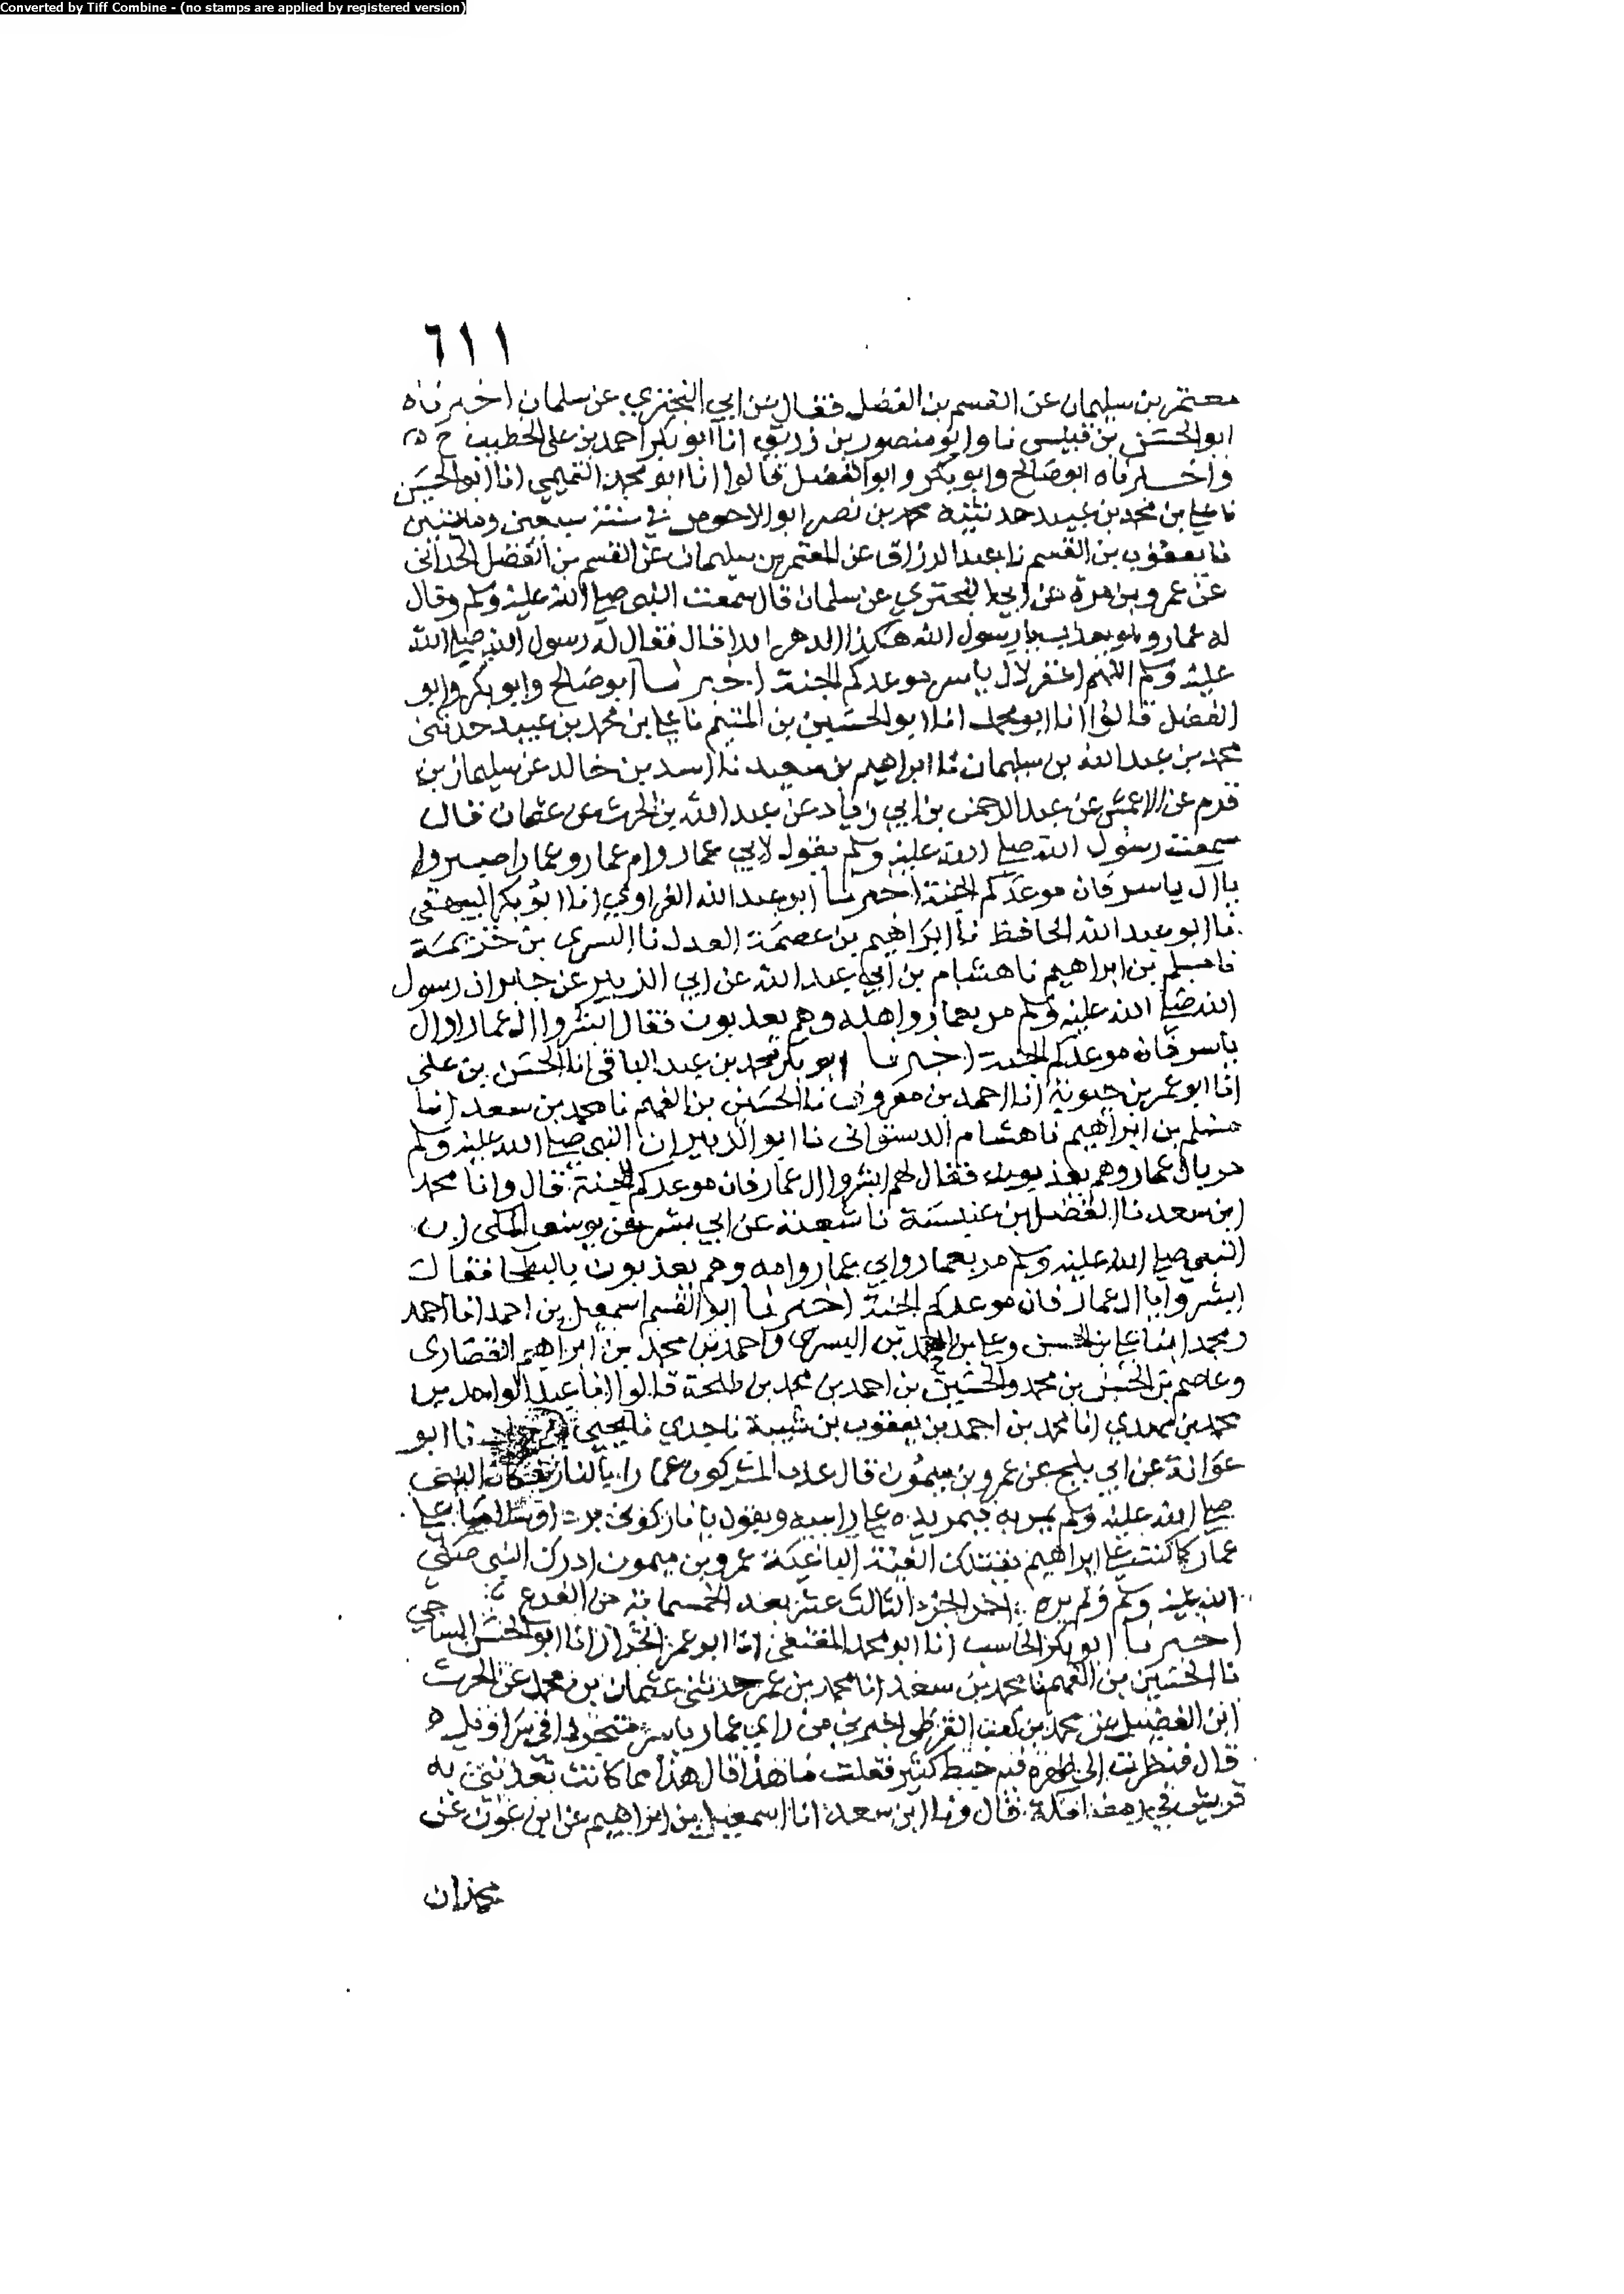 Converted by Tiff Combine - (no stamps are applied by registered version)
٦١١
معتمر بن سليمان عن القسم بن الفضل فقال عن ابي البختري عن سلمان اخبرناه
ابو الحسن بن قبيس نا وابو منصور بن زريق انا ابو بكر احمد بن علي الخطيب ح
واخبرناه ابو صالح وابو بكر وابو الفضل قالوا انا ابو محمد التميمي انا ابو الحسين
نا علي بن محمد بن عبيد حدثنيه محمد بن نصر ابو الاحوص في سنة سبعين ومائتين
نا يعقوب بن القسم نا عبد الرزاق عن المعتمر بن سليمان عن القسم بن الفضل الحداني
عن عمرو بن مرة عن ابي البختري عن سلمان قال سمعت النبي صلى الله عليه وسلم وقال
له عمار وهو يعذب يا رسول الله هكذا الدهر ابدا قال فقال له رسول الله صلى الله
عليه وسلم اللهم اغفر لال ياسر موعدكم الجنة اخبرنا ابو صالح وابو بكر وابو
الفضل قالوا انا ابو محمد انا ابو الحسين بن المتيم نا علي بن محمد بن عبيد حدثني
محمد بن عبد الله بن سليمان نا ابراهيم بن سعيد نا اسد بن خالد عن سليمان بن
قرم عن الاعمش عن عبد الرحمن بن ابي زياد عن عبد الله بن الحرث عن عثمان قال
سمعت رسول الله صلى الله عليه وسلم يقول لابي عمار وام عمار وعمار اصبروا
يا ال ياسر فان موعدكم الجنة اخبرنا ابو عبد الله الفراوي انا ابو بكر البيهقي
نا ابو عبد الله الحافظ نا ابراهيم بن عصمة العدل نا السري بن خزيمة
نا مسلم بن ابراهيم نا هشام بن ابي عبد الله عن ابي الزبير عن جابر ان رسول
الله صلى الله عليه وسلم مر بعمار واهله وهم يعذبون فقال ابشروا ال عمار او ال
ياسر فان موعدكم الجنة اخبرنا ابو بكر محمد بن عبد الباقي انا الحسن بن علي
انا ابو عمر بن حيوية انا احمد بن معروف نا الحسين بن الفهم نا محمد بن سعد انا
مسلم بن ابراهيم نا هشام الدستوائي نا ابو الزبير ان النبي صلى الله عليه وسلم
مر بال عمار وهم يعذبون فقال لهم ابشروا ال عمار فان موعدكم الجنة قال وانا محمد
ابن سعد نا الفضل بن عنبسة نا شعبة عن ابي بشر عن يوسف المكي ان
النبي صلى الله عليه وسلم مر بعمار وابي عمار وامه وهم يعذبون بالبطحا فقال
ابشروا يا ال عمار فان موعدكم الجنة اخبرنا ابو القسم اسمعيل بن احمد انا احمد
ومحمد ابنا علي بن الحسن وعلي بن احمد بن البسري واحمد بن محمد بن ابراهيم القصاري
وعاصم بن الحسن بن محمد والحسين بن احمد بن محمد بن طلحة قالوا انا عبد الواحد بن
محمد بن مهدي انا محمد بن احمد بن يعقوب بن شيبة نا جدي نا يحيى بن حماد نا ابو
عوانة عن ابي بلج عن عمرو بن ميمون قال عذب المشركون عمارا بالنار فكان النبي
صلى الله عليه وسلم يمر به فيمر يده على راسه ويقول يا نار كوني بردا وسلاما على
عمار كما كنت على ابراهيم تقتلك الفئة الباغية عمرو بن ميمون ادرك النبي صلى
الله عليه وسلم ولم يره اخر الجزء الثالث عشر بعد الخمسمائة من الفرع
اخبرنا ابو بكر الحاسب انا ابو محمد المقنعي انا ابو عمر الخزاز انا ابو الحسن الساجي
نا الحسين بن الفهم نا محمد بن سعد انا محمد بن عمر حدثني عثمان بن محمد عن الحرث
ابن الفضيل عن محمد بن كعب القرظي اخبرني من راي عمار ياسر متجردا في سراويل
قال فنظرت الى ظهره فيه خبط كثير فقلت ما هذا قال هذا مما كانت تعذبني به
قريش في رمضا مكة قال ونا ابن سعد انا اسمعيل بن ابراهيم عن ابن عون عن
محمد ان